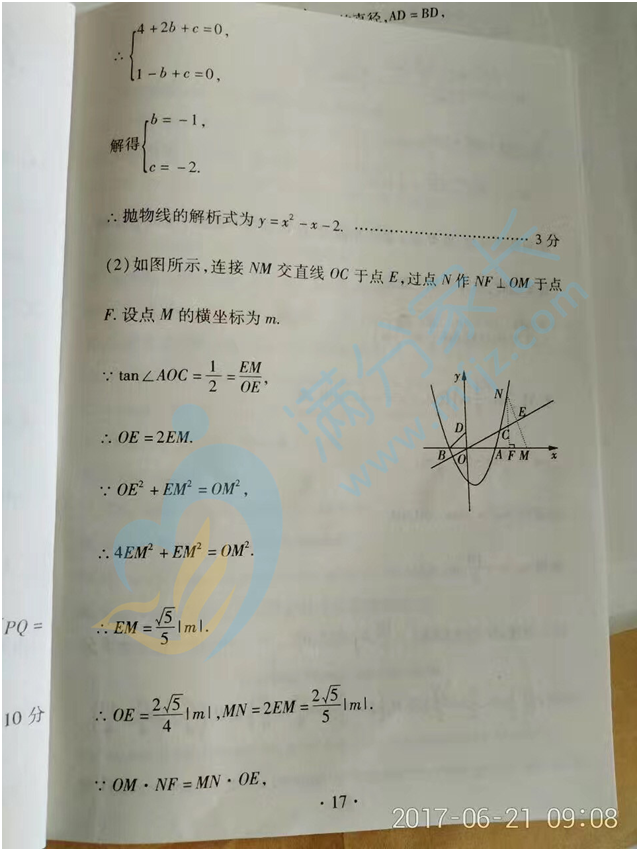 的直径,AD=BD,
∴ { 4+2b+c=0,
1-b+c=0,
解得 { b=-1,
c=-2.
∴ 抛物线的解析式为 y=x²-x-2. …………………………… 3分
(2)如图所示,连接 NM 交直线 OC 于点 E,过点 N 作 NF⊥OM 于点
F.设点 M 的横坐标为 m.
∵ tan∠AOC=1/2=EM/OE,
∴ OE=2EM.
∵ OE²+EM²=OM²,
∴ 4EM²+EM²=OM².
∴ EM=√5/5|m|.
∴ OE=2√5/4|m|,MN=2EM=2√5/5|m|.
∵ OM·NF=MN·OE,
y
N
E
D
C
B O A F M x
PQ=
10分
·17·
满分家长
www.mfjz.com
2017-06-21 09:08